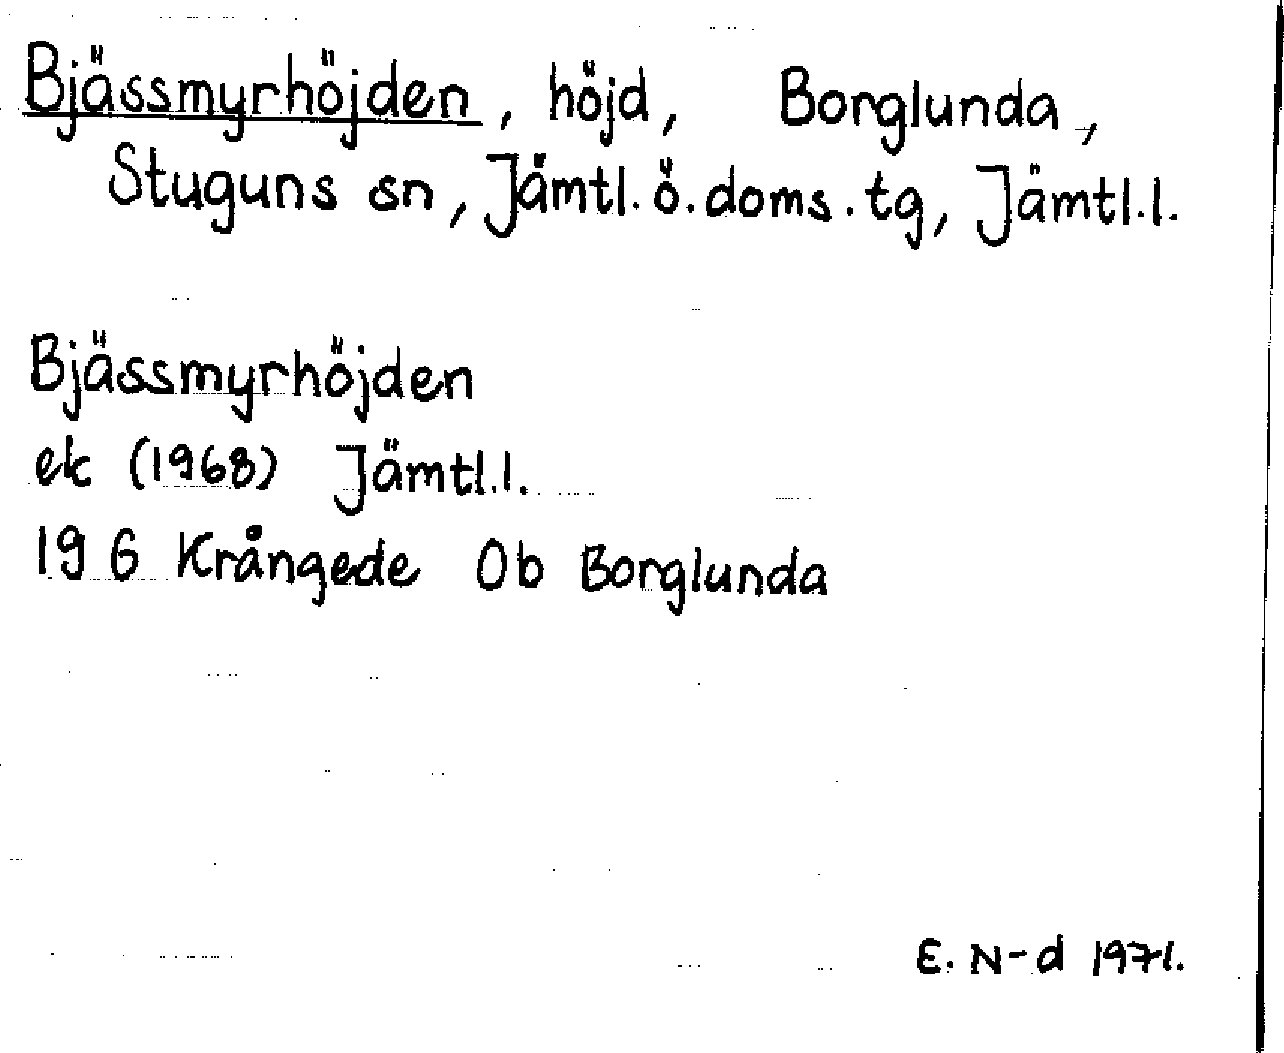 Bjässmyrhöjden, höjd, Borglunda,
Stuguns sn, Jämtl. ö. doms. tg, Jämtl.l.
Bjässmyrhöjden
ek (1968) Jämtl.l.
19 G Krångede Ob Borglunda
E. N-d 1971.